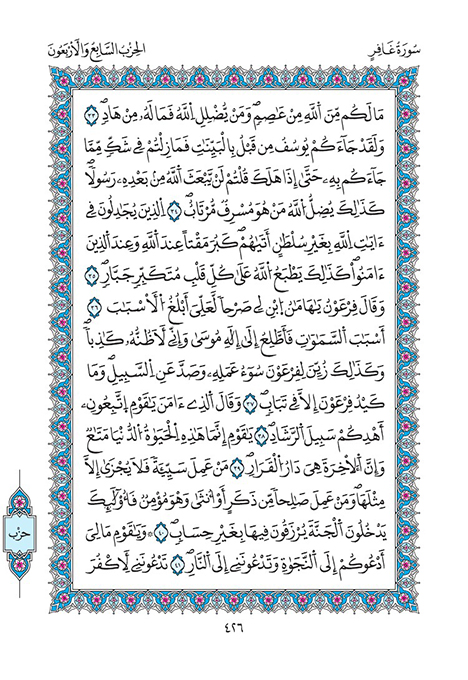 سُورَةُ غَافِرٍ
الحِزْبُ السَّابِعُ وَالأَرْبَعُونَ
مَا لَكُم مِّنَ اَ۬للَّهِ مِنْ عَاصِمٖۖ وَمَنْ يُّضْلِلِ اِ۬للَّهُ فَمَا لَهُۥ مِنْ هَادٖۖ ٣٣
وَلَقَدْ جَآءَكُمْ يُوسُفُ مِن قَبْلُ بِالْبَيِّنَٰتِ فَمَا زِلْتُمْ فِے شَكّٖ مِّمَّا
جَآءَكُم بِهِۦ حَتَّىٰٓ إِذَا هَلَكَ قُلْتُمْ لَنْ يَّبْعَثَ اَ۬للَّهُ مِنۢ بَعْدِهِۦ رَسُولاٗۖ
كَذَٰلِكَ يُضِلُّ اُ۬للَّهُ مَنْ هُوَ مُسْرِفٞ مُّرْتَابٌۖ ٣٤ اِ۬لذِينَ يُجَٰدِلُونَ فِےٓ
ءَايَٰتِ اِ۬للَّهِ بِغَيْرِ سُلْطَٰنٍ أَتَىٰهُمْ كَبُرَ مَقْتاً عِندَ اَ۬للَّهِ وَعِندَ اَ۬لذِينَ
ءَامَنُواْۖ كَذَٰلِكَ يَطْبَعُ اُ۬للَّهُ عَلَىٰ كُلِّ قَلْبِ مُتَكَبِّرٖ جَبّ۪ارٖۖ ٣٥
وَقَالَ فِرْعَوْنُ يَٰهَٰمَٰنُ اُ۪بْنِ لِے صَرْحاٗ لَّعَلِّيَ أَبْلُغُ اُ۬لْأَسْبَٰبَ ٣٦
أَسْبَٰبَ اَ۬لسَّمَٰوَٰتِ فَأَطَّلِعُ إِلَىٰٓ إِلَٰهِ مُوسَىٰ وَإِنِّے لَأَظُنُّهُۥ كَٰذِباٗۖ
وَكَذَٰلِكَ زُيِّنَ لِفِرْعَوْنَ سُوٓءُ عَمَلِهِۦ وَصَدَّ عَنِ اِ۬لسَّبِيلِۖ وَمَا
كَيْدُ فِرْعَوْنَ إِلَّا فِے تَبَابٖۖ ٣٧ وَقَالَ اَ۬لذِےٓ ءَامَنَ يَٰقَوْمِ اِ۪تَّبِعُونِۦٓ
أَهْدِكُمْ سَبِيلَ اَ۬لرَّشَادِۖ ٣٨ يَٰقَوْمِ إِنَّمَا هَٰذِهِ اِ۬لْحَيَوٰةُ اُ۬لدُّنْيَا مَتَٰعٞ
وَإِنَّ اَ۬لْأٓخِرَةَ هِيَ دَارُ اُ۬لْقَرَارِۖ ٣٩ مَنْ عَمِلَ سَيِّئَةٗ فَلَا يُجْزَىٰٓ إِلَّا
مِثْلَهَاۖ وَمَنْ عَمِلَ صَٰلِحاٗ مِّن ذَكَرٍ أَوْ ا۟نثَىٰ وَهُوَ مُؤْمِنٞ فَأُوْلَٰٓئِكَ
يَدْخُلُونَ اَ۬لْجَنَّةَ يُرْزَقُونَ فِيهَا بِغَيْرِ حِسَابٖۖ ٤٠ وَيَٰقَوْمِ مَا لِيَ
أَدْعُوكُمْ إِلَى اَ۬لنَّجَوٰةِ وَتَدْعُونَنِےٓ إِلَى اَ۬لنّ۪ارِۖ ٤١ تَدْعُونَنِے لِأَكْفُرَ
حِزْب
٤٢٦